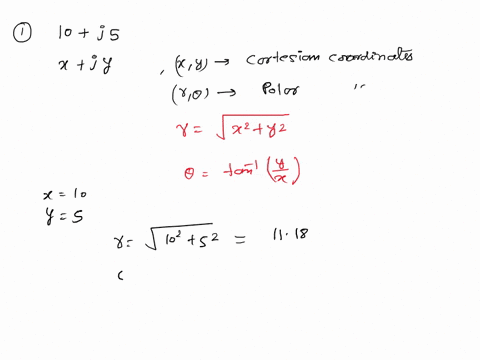 ① 10 + j5
x + jy , (x,y) → Cortesian coordinates
(r,θ) → Polor ''
r = √(x² + y²)
θ = tan⁻¹(y/x)
x = 10
y = 5
r = √(10² + 5²) = 11.18